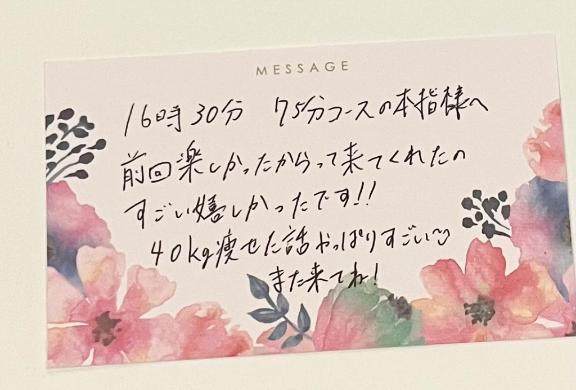 MESSAGE
16時30分 75分コースの本指様へ
前回楽しかったからって来てくれたの
すごい嬉しかったです!!
40kg痩せた話やっぱりすごい
また来てね!